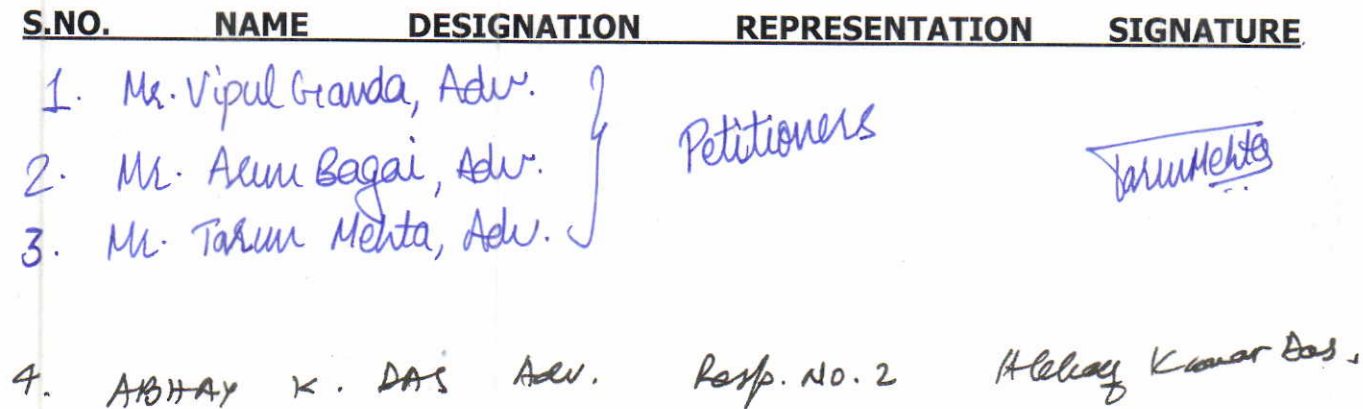 S.NO. NAME DESIGNATION REPRESENTATION SIGNATURE
1. Mr. Vipul Ganda, Adv.
2. Mr. Arun Bagai, Adv.
3. Mr. Tarun Mehta, Adv.
Petitioners
Tarun Mehta
4. ABHAY K. DAS Adv. Resp. No. 2 Abhay Kumar Das.